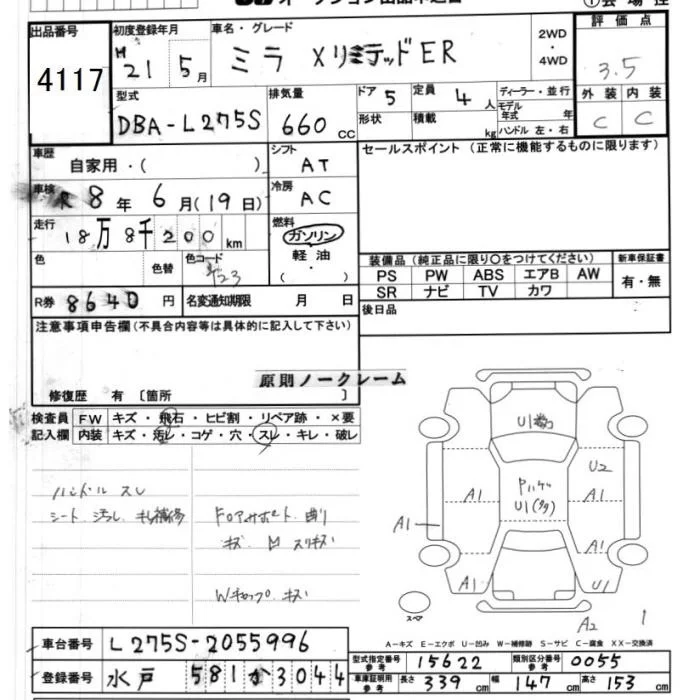 出品番号 4117
初度登録年月 H21年 5月
車名・グレード ミラ XリミテッドER
2WD・4WD
評価点 3.5
外装 C 内装 C
型式 DBA-L275S
排気量 660 CC
ドア 5 定員 4 人
形状 積載 kg
ディーラー・並行
モデル年式 年
ハンドル 左・右
車歴 自家用・( )
シフト AT
セールスポイント (正常に機能するものに限ります)
車検 R8年 6月(19日)
冷房 AC
走行 18万8千200km
燃料 ガソリン
軽油・( )
色 色替 色コード
装備品 (純正品に限り○をつけてください)
新車保証書
PS PW ABS エアB AW
SR ナビ TV カワ
有・無
R券 8640円 名変通知期限 月 日
後日品
注意事項申告欄(不具合内容等は具体的に記入して下さい)
原則ノークレーム
修復歴 有 〔箇所 〕
検査員記入欄
FW キズ・飛石・ヒビ割・リペア跡・×要
内装 キズ・汚レ・コゲ・穴・スレ・キレ・破レ
ハンドル スレ
シート 汚レ
キズ
Wキャップ キズ
U1
U2
A1 A1
U1
A1
A1
A1 U1
スペア
A2
1
A-キズ E-エクボ U-凹み W-補修跡 S-サビ C-腐食 XX-交換済
車台番号 L275S-2055996
登録番号 水戸 581 か 3044
型式指定番号参考 15622 類別区分番号参考 0055
車庫証明用参考 長さ 339cm 幅 147cm 高さ 153cm